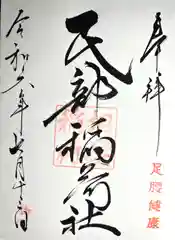 奉拝
足腰健康
民部稲荷社
令和六年七月十三日